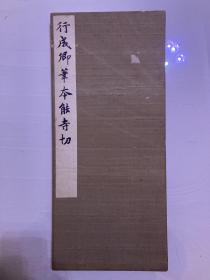 行成卿筆本能寺切